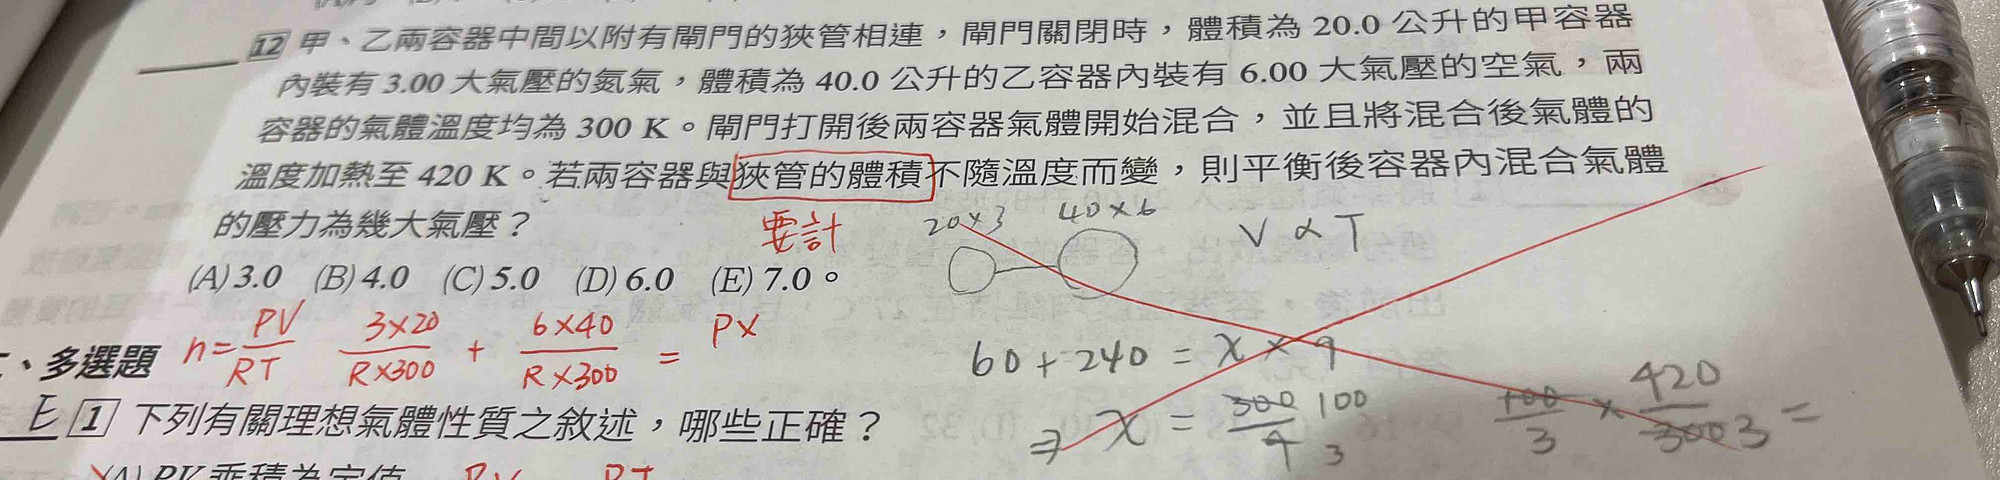 12 甲、乙兩容器中間以附有閘門的狹管相連，閘門關閉時，體積為 20.0 公升的甲容器
內裝有 3.00 大氣壓的氮氣，體積為 40.0 公升的乙容器內裝有 6.00 大氣壓的空氣，兩
容器的氣體溫度均為 300 K。閘門打開後兩容器氣體開始混合，並且將混合後氣體的
溫度加熱至 420 K。若兩容器與狹管的體積不隨溫度而變，則平衡後容器內混合氣體
的壓力為幾大氣壓？
要計
20×3 40×6 V∝T
(A) 3.0 (B) 4.0 (C) 5.0 (D) 6.0 (E) 7.0。
n=PV/RT 3×20/R×300 + 6×40/R×300 = PX
60+240 = x×9
、多選題
E 1 下列有關理想氣體性質之敘述，哪些正確？
⇒ x = 300/9 100/3 100/3 × 420/300 3 =
(A) PV 乘積為定值